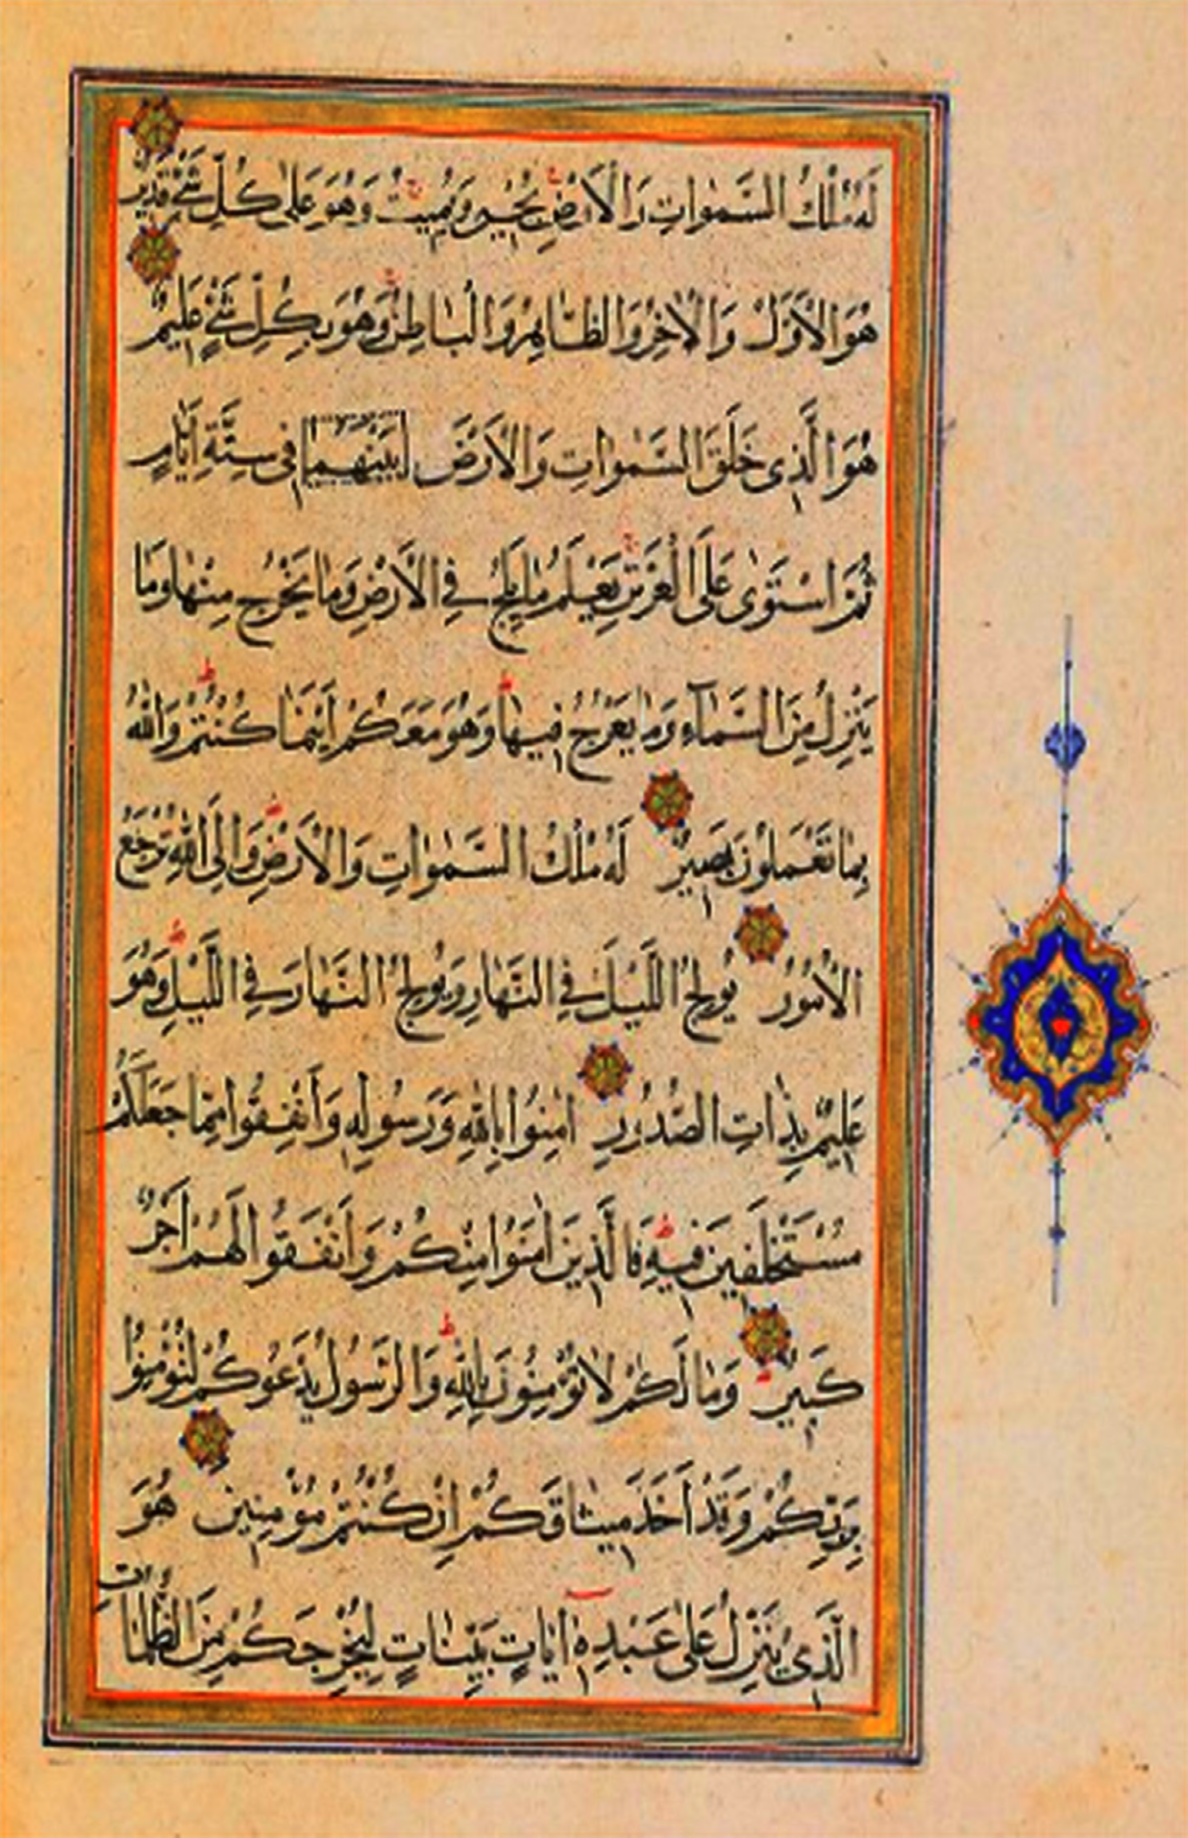 لَهُ مُلْكُ السَّمٰوَاتِ وَالْاَرْضِ يُحْيِي وَيُمِيتُ وَهُوَ عَلٰى كُلِّ شَيْءٍ قَدِيرٌ
هُوَ الْاَوَّلُ وَالْاٰخِرُ وَالظَّاهِرُ وَالْبَاطِنُ وَهُوَ بِكُلِّ شَيْءٍ عَلِيمٌ
هُوَ الَّذِى خَلَقَ السَّمٰوَاتِ وَالْاَرْضَ بَيْنَهُمَا فِى سِتَّةِ اَيَّامٍ
ثُمَّ اسْتَوٰى عَلَى الْعَرْشِ يَعْلَمُ مَا يَلِجُ فِي الْاَرْضِ وَمَا يَخْرُجُ مِنْهَا وَمَا
يَنْزِلُ مِنَ السَّمَآءِ وَمَا يَعْرُجُ فِيهَا وَهُوَ مَعَكُمْ اَيْنَمَا كُنْتُمْ وَاللّٰهُ
بِمَا تَعْمَلُونَ بَصِيرٌ لَهُ مُلْكُ السَّمٰوَاتِ وَالْاَرْضِ وَاِلَى اللّٰهِ تُرْجَعُ
الْاُمُورُ يُولِجُ اللَّيْلَ فِي النَّهَارِ وَيُولِجُ النَّهَارَ فِي اللَّيْلِ وَهُوَ
عَلِيمٌ بِذَاتِ الصُّدُورِ اٰمِنُوا بِاللّٰهِ وَرَسُولِهِ وَاَنْفِقُوا مِمَّا جَعَلَكُمْ
مُسْتَخْلَفِينَ فِيهِ فَالَّذِينَ اٰمَنُوا مِنْكُمْ وَاَنْفَقُوا لَهُمْ اَجْرٌ
كَبِيرٌ وَمَا لَكُمْ لَا تُؤْمِنُونَ بِاللّٰهِ وَالرَّسُولُ يَدْعُوكُمْ لِتُؤْمِنُوا
بِرَبِّكُمْ وَقَدْ اَخَذَ مِيثَاقَكُمْ اِنْ كُنْتُمْ مُؤْمِنِينَ هُوَ
الَّذِى يُنَزِّلُ عَلٰى عَبْدِهِ اٰيَاتٍ بَيِّنَاتٍ لِيُخْرِجَكُمْ مِنَ الظُّلُمَاتِ